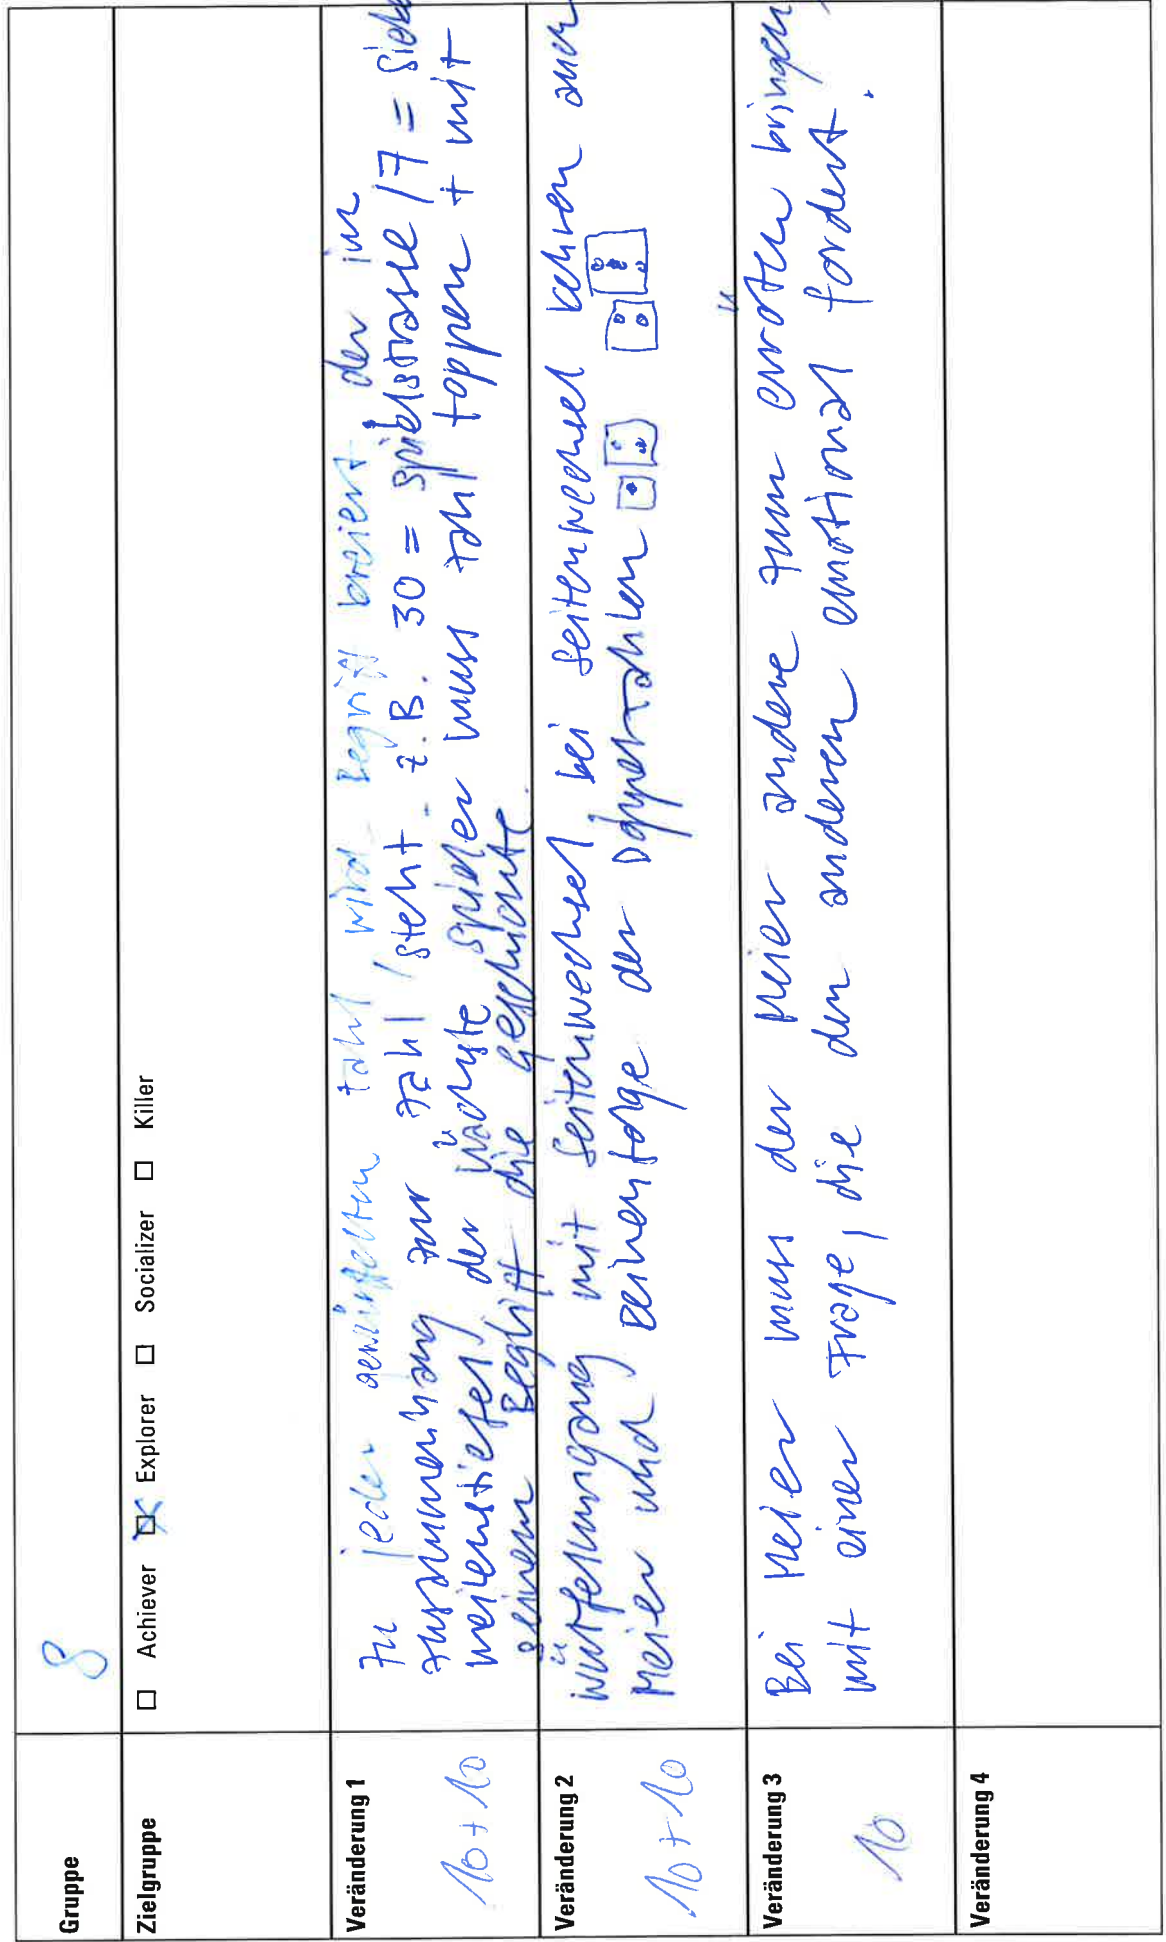 Gruppe
8
Zielgruppe
☐ Achiever ☒ Explorer ☐ Socializer ☐ Killer
Veränderung 1
10 + 10
Zu jeder gewürfelten Zahl wird Begriff kreiert der im
Zusammenhang zur Zahl / steht. z.B. 30 = Spielstrasse / 7 =
der nächste Spieler muss Zahl toppen + mit
seinem Begriff die Geschichte
Veränderung 2
10 + 10
Würfelumgang mit Seitenwechsel, bei Seitenwechsel kehren
Meier und Reihenfolge der Doppelzahlen
Veränderung 3
10
Bei Meier muss der Meier andere zum erröten bringen,
mit einer Frage, die den anderen emotional fordert.
Veränderung 4